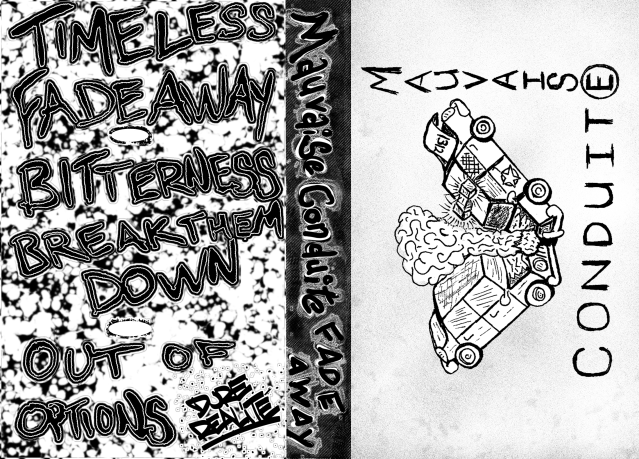 TIMELESS
FADE AWAY
BITTERNESS
BREAK THEM
DOWN
OUT OF
OPTIONS
DURE
REALITE
Mauvaise Conduite FADE
AWAY
MAUVAISE
CONDUITE